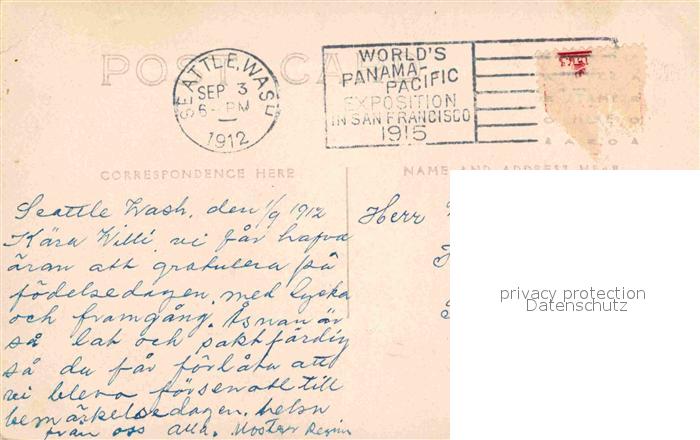 POST CARD
SEATTLE, WASH.
SEP 3
6- PM
1912
WORLD'S
PANAMA-
PACIFIC
EXPOSITION
IN SAN FRANCISCO
1915
CORRESPONDENCE HERE
NAME AND ADDRESS HERE
Seattle Wash. den 1/9 1912
Kära Willi. vi får hafva
äran att gratulera på
födelsedagen. med Lycka
och framgång. Åsnan är
så lat och saktfärdig
så du får förlåta att
vi bleva försenatt till
bemärkelsedagen. helsn
från oss alla. Moster
Herr
privacy protection
Datenschutz